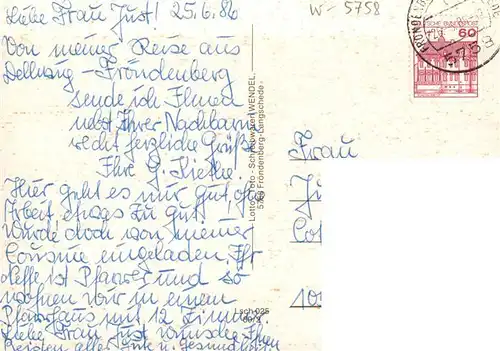 Liebe Frau Just! 25.6.86
Von meiner Reise aus
Dellwig-Fröndenberg
sende ich Ihnen
nebst Ihrer Nachbarin
recht herzliche Grüße
Ihre G.
Hier geht es mir gut, ohne
Arbeit etwas zu gut!
Wurde doch von meiner
Cousine eingeladen, Ihr
Neffe ist Pfarrer und so
wohnen wir in einem
Pfarrhaus mit 12 Zimmer.
Liebe Frau Just wünsche Ihnen
alles Gute u. Gesundheit
W-5758
DEUTSCHE BUNDESPOST
60
FRÖNDENBERG
575
Lotto - Toto - Schreibwaren WENDEL
Fröndenberg-Langschede
Frau